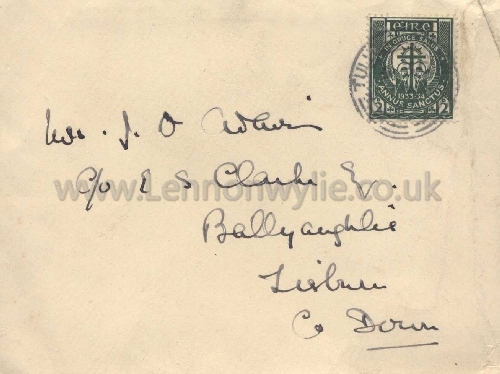 éire
IN CRUCE SALUS
1933-34
ANNUS SANCTUS
2 2
TUL
Mrs. J. O
c/o E S Clarke Esq.
www.Lennonwylie.co.uk
Ballyaughlis
Lisburn
Co Down